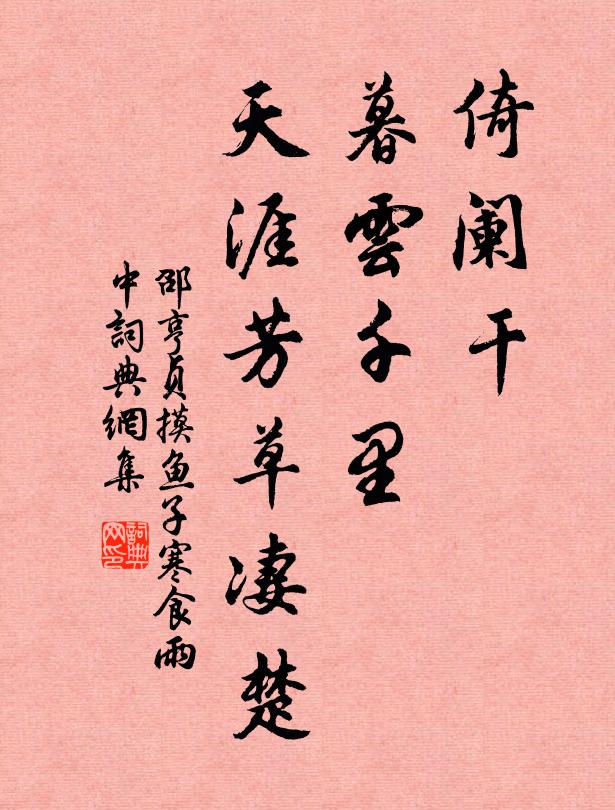 倚阑干
暮雲千里
天涯芳草凄楚
邵亨貞摸鱼子寒食雨
中詞典網集
詞典网印